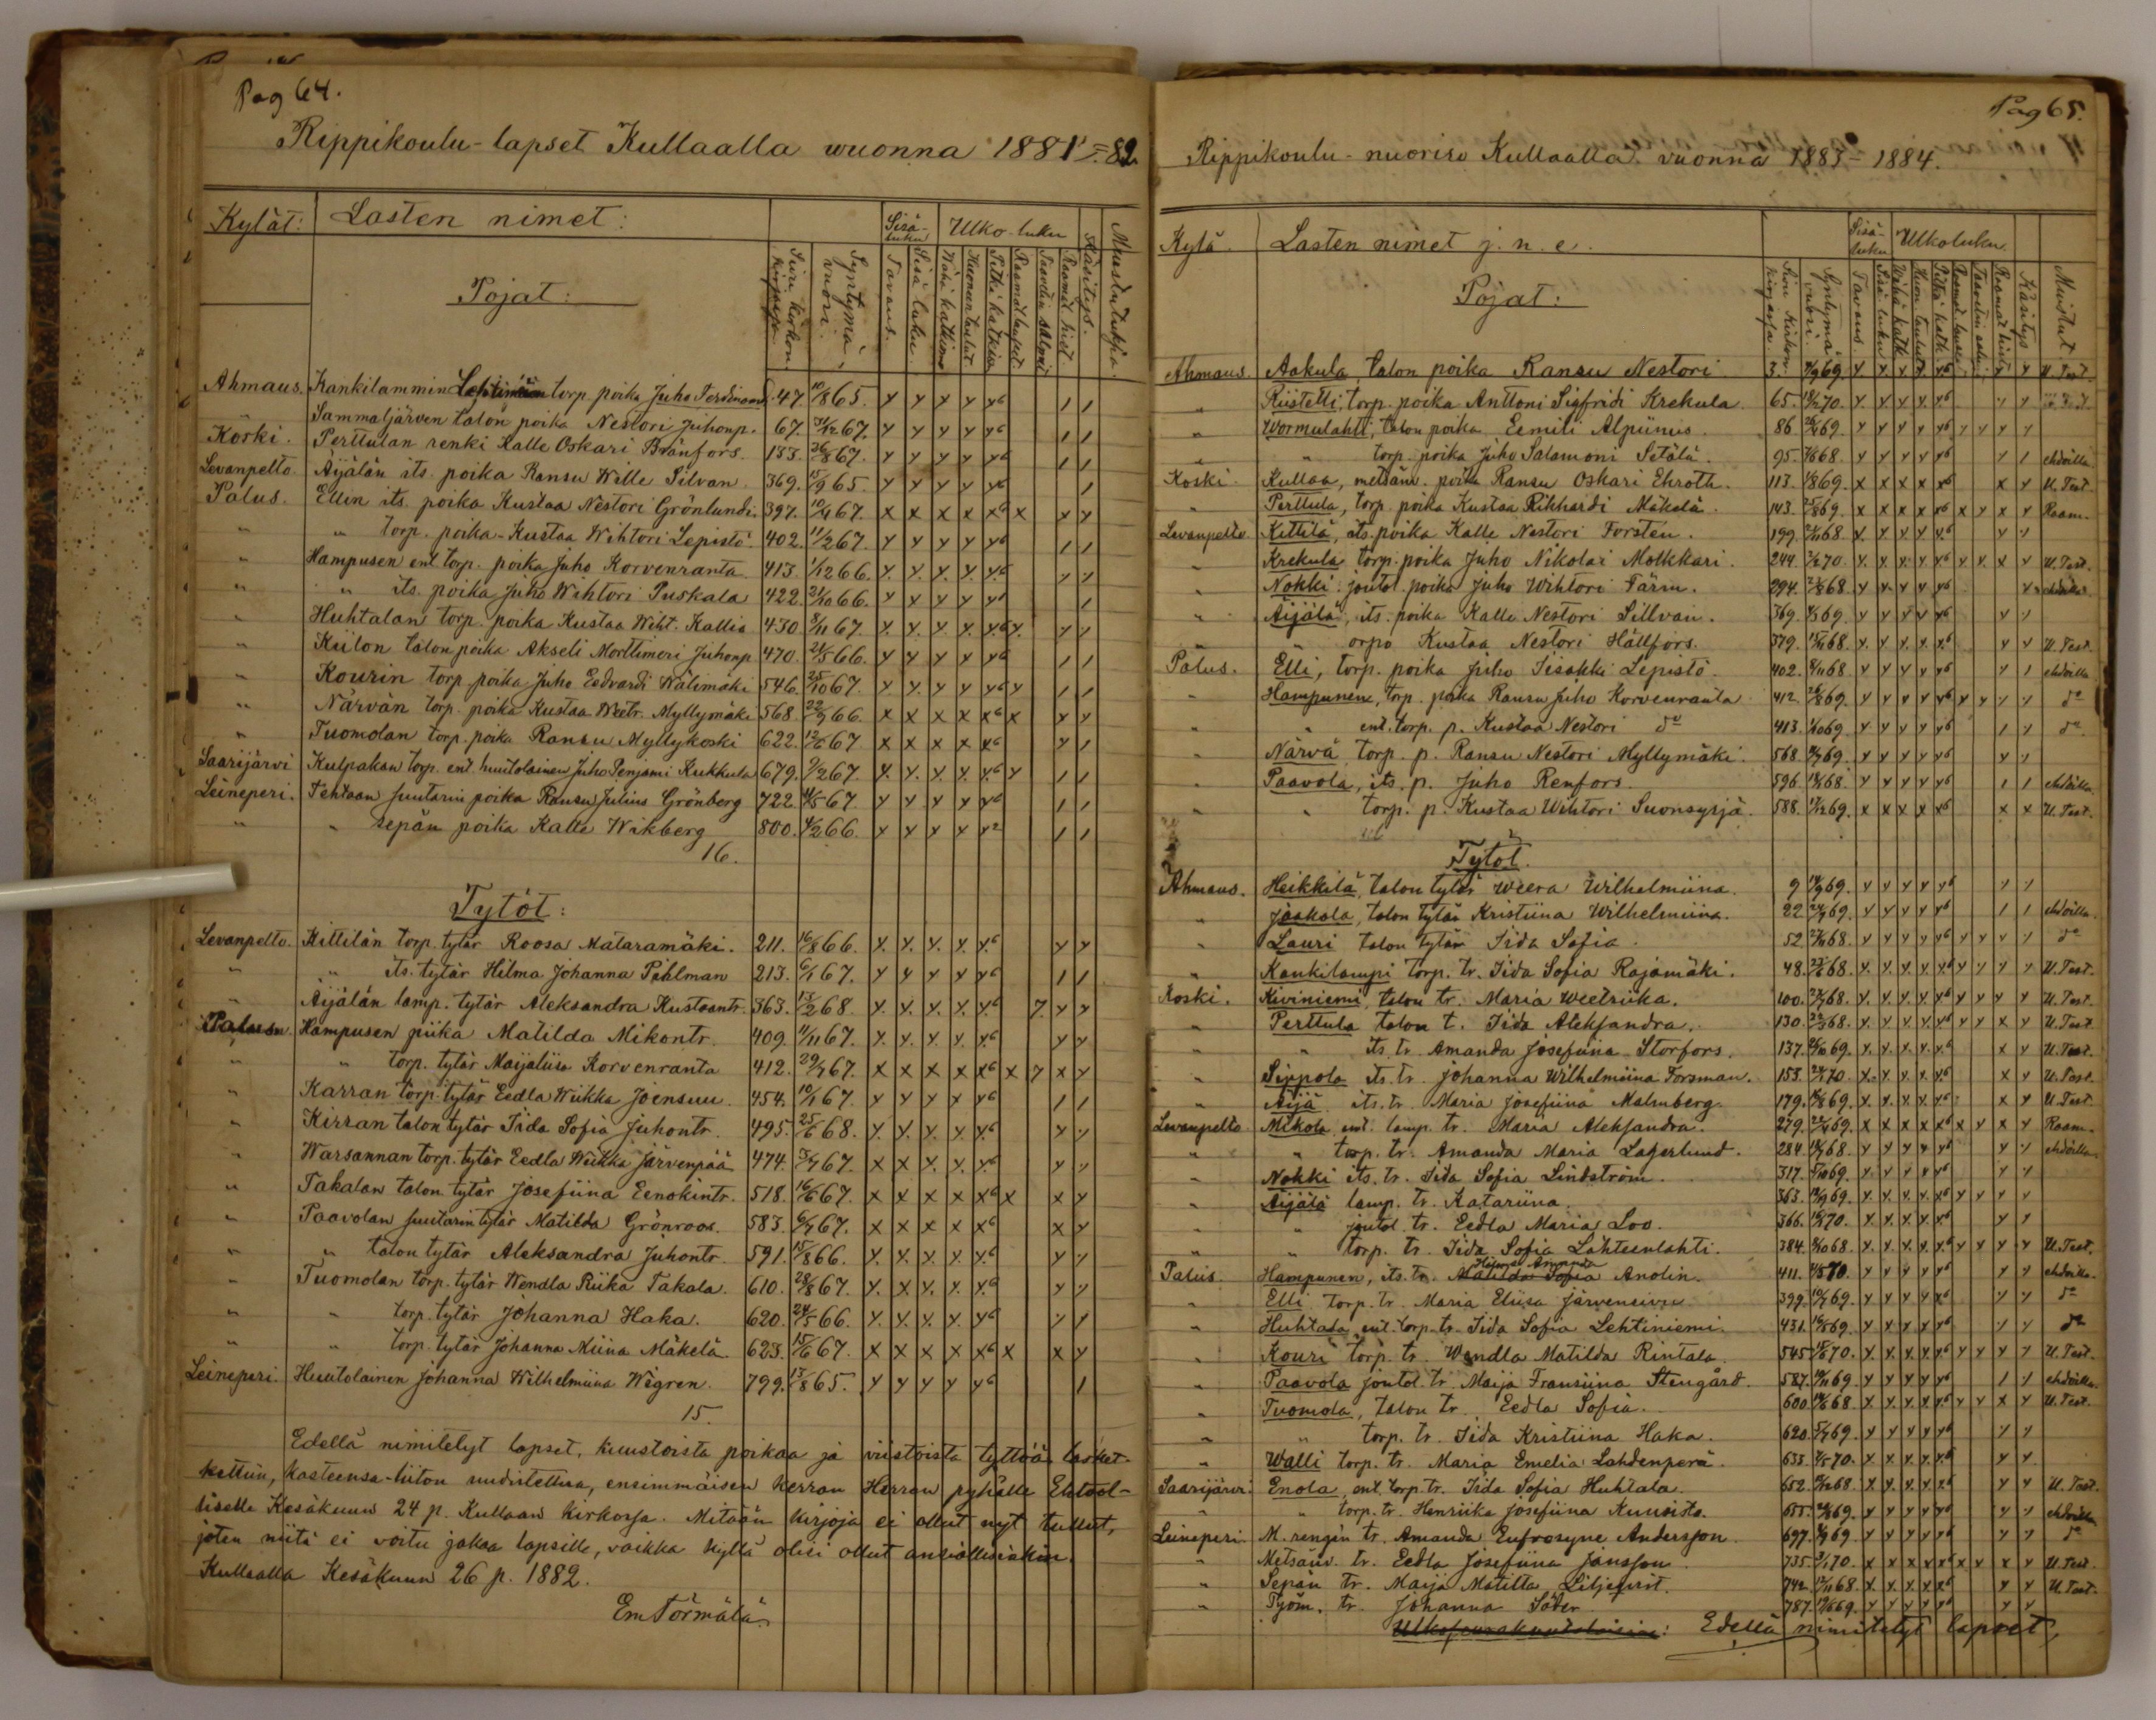 Pag 64.
Rippikoulu-lapset Kullaalla wuonna 1881 = 82
Kylät: Lasten nimet: Sisä-luku Ulko-luku Käsitys. Muistutuksia
Pojat: Suu kirkon kirjassa Syntymä vuosi. Tavaus. Sisä luku
Ahmaus. Kankilammin torp. poika Juho Ferdinand 47. 10/8 65. x x x x x6 / /
" Sammaljärven talon poika Nestori Juhonp. 67. 31/12 67. x x x x x6 / /
Koski. Perttulan renki Kalle Oskari Bränfors. 133. 26/8 67. x x x x x6 / /
Levanpelto. Äijälän its. poika Ransu Wille Silvan. 369. 15/9 65. x x x x x6 /
Palus. Ellin its. poika Kustaa Nestori Grönlundi. 397. 10/9 67. x x x x x6 x x x
" " torp. poika Kustaa Wihtori Lepistö. 402. 11/2 67. x x x x x6 / /
" Hampusen ent torp. poika Juho Korvenranta 413. 1/12 66. x. x. x. x. x.6 x x
" " its. poika Juho Wihtori Puskala 422. 21/10 66. x x x x x6 /
" Huhtalan torp. poika Kustaa Wiht. Kallio 430. 8/11 67. x. x. x. x. x.6 x. x x
" Kiilon talon poika Akseli Morttimeri Juhonp 470. 21/5 66. x x x x x6 / /
" Kourin torp. poika Juho Eedvardi Wälimäki 546. 25/10 67. x x. x x x6 x / /
" Närvän torp. poika Kustaa Weetr. Myllymäki 568. 22/9 66. x x x x x6 x x x
" Tuomolan torp. poika Ransu Myllykoski 622. 12/6 67 x x x x x6 x /
Saarijärvi Kulpakan torp. ent. huutolainen Juho Penjami Kukkula 679. 9/2 67. x. x. x. x. x.6 x / /
Leineperi. Tehtaan suutarin poika Ransu Julius Grönberg 722. 11/5 67 x x x x x6 / /
" " sepän poika Kalle Wikberg 800. 4/2 66. x x x x x2 / /
16.
Tytöt:
Levanpelto. Kittilän torp. tytär Roosa Mataramäki. 211. 16/8 66. x. x. x. x. x.6 x x
" " its. tytär Hilma Johanna Pihlman 213. 6/1 67. x x x x x6 / /
" Äijälän lamp. tytär Aleksandra Kustaantr. 363. 13/2 68. x. x. x. x. x.6 7. x x
Hampusen piika Matilda Mikontr. 409. 11/11 67. x. x. x. x. x6 x x
" " torp. tytär Maijaliisa Korvenranta 412. 29/7 67. x x x x x6 x 7 x x
" Karran torp. tytär Eedla Wiikka Joensuu. 454. 10/1 67. x x x x x6 / /
" Kirran talon tytär Iida Sofia Juhontr. 495. 25/6 68. x. x. x. x. x.6 x x
" Warsannan torp. tytär Eedla Wiikka Järvenpää 474. 3/7 67. x x x. x. x.6 x x
" Takalan talon tytär Josefiina Eenokintr. 518. 16/6 67. x x x x x6 x x x
" Paavolan suutarin tytär Matilda Grönroos. 583. 6/7 67. x x x x x6 x x
" " talon tytär Aleksandra Juhontr. 591. 15/8 66. x. x. x. x. x.6 x x
" Tuomolan torp. tytär Wendla Riika Takala. 610. 28/8 67. x. x. x. x. x.6 x x
" " torp. tytär Johanna Haka. 620. 24/5 66. x. x. x. x x6 x /
" " torp. tytär Johanna Miina Mäkelä. 623. 15/6 67. x x x x x6 x x x
Leineperi. Huutolainen Johanna Wilhelmiina Wigren. 799. 17/8 65. x x x x x6 /
15.
Edellä nimitelyt lapset, kuustoista poikaa ja viistoista tyttöä lasket-
kettiin, kasteensa-liiton uudistettua, ensimmäisen kerran Herran pyhälle Ehtool-
liselle Kesäkuun 24 p. Kullaan kirkossa. Mitään kirjoja ei ollut nyt tullut,
joten niitä ei voitu jakaa lapsille, vaikka kyllä olisi ollut ansiollisiakin.
Kullaalla Kesäkuun 26 p. 1882.
Em Törmälä.
Pag 65.
Rippikoulu-nuoriso Kullaalla vuonna 1883 - 1884.
Kylä. Lasten nimet j. n. e. Sisä-luku Ulkoluku.
Pojat: Syntymä vuosi Tavaus Sisä luku Käsitys Muistut
Ahmaus. Aakula, talon poika Ransu Nestori 3. 7/9 69. x x x x x6 x x U. Test.
" Riistelli, torp. poika Anttoni Sigfridi Krekula. 65. 13/2 70. x. x x x x6 x x
" Wormulahti, talon poika Eemili Alpinus 86. 28/4 69. x x x x x6 x x x x
" " torp. poika Juho Salamoni Setälä. 95. 68. x x x x x6 / / ehdoilla.
Koski. Kullaa, metsänv. poika Ransu Oskari Ehroth. 113. 1/8 69. x x x x x6 x x U. Test.
" Perttula, torp. poika Kustaa Rikhardi Mäkelä. 143. 25/8 69. x x x x x6 x x x x Raam.
Levanpelto Kittilä, its. poika Kalle Nestori Forstén. 199. 68. x. x x x. x.6 x x
" Krekula torp. poika Juho Nikolai Molkkari. 244. 7/2 70. x. x. x. x. x6 x x. x x U. Test.
" Nokki joutol. poika Juho Wihtori Färm. 294. 68. x x x x x6 x x
" Äijälä, its. poika Kalle Nestori Sillvan. 369. 4/3 69. x x x x x6 x x
" " orpo Kustaa Nestori Hällfors. 379. 68. x x x x x6 x x U. Test.
Palus. Elli, torp. poika Juho Iisakki Lepistö. 402. 68. x x x x x6 x / ehdoilla
" Hampunen, torp. poika Ransu Juho Korvenranta 412. 26/8 69. x x x x x6 x x x x do
" " ent. torp. p. Kustaa Nestori do 413. 69. x x x x x6 / x do
" Närvä torp. p. Ransu Nestori Myllymäki. 568. 69. x x x x x6 x x
" Paavola, its. p. Juho Renfors. 596. 68. x x x x x6 / / ehdoilla.
" " torp. p. Kustaa Wihtori Suonsyrjä. 588. 69. x x x x x6 x x U. Test.
Tytöt.
Ahmaus. Heikkilä, talon tytär Weera Wilhelmiina. 9 14/9 69. x x x x x6 x x
" Jaakola, talon tytär Kristiina Wilhelmiina. 22 24/7 69. x x x x x6 / / ehdoilla.
" Lauri talon tytär Iida Sofia. 52 68. x x x x x6 x x x x do
" Kankilampi torp. tr. Iida Sofia Rajamäki. 48. 68. x. x. x. x. x.6 x x x x U. Test.
Koski. Kiviniemi, talon tr. Maria Weetriika. 100. 68. x. x. x. x. x6 x x x x U. Test.
" Perttula talon t. Iida Aleksandra. 130. 68. x. x. x. x. x6 x x x x U. Test.
" " its. tr. Amanda Josefiina Storfors. 137. 69. x. x. x. x. x.6 x x U. Test.
" Sippola its. tr. Johanna Wilhelmiina Forsman. 153. 70. x. x. x. x. x6 x x U. Test.
" Äijä its. tr. Maria Josefiina Malmberg. 179. 69. x. x. x. x. x6 x x U. Test.
Levanpelto Mikola ent. lamp. tr. Maria Aleksandra. 279. 69. x x x x x6 x x x x Raam.
" " torp. tr. Amanda Maria Lagerlund. 284. 68. x x x x x6 x x ehdoilla.
" Nokki its. tr. Iida Sofia Lindström. 317. 69. x x x x x6 x x
" Äijälä lamp. tr. Katariina. 363. 69. x. x. x. x. x6 x x x x
" " joutol. tr. Eedla Maria Loo. 366. 70. x. x. x. x. x.6 x x
" " torp. tr. Iida Sofia Lähteenlahti. 384. 68. x. x. x. x. x6 x x x x U. Test.
Palus. Hampunen, its. tr. Matilda Sofia Anolin. 411. 4/5 70. x x x x x6 x x ehdoilla.
" Elli torp. tr. Maria Eliisa Järvensivu 399. 69. x x x x x6 x x do
" Huhtala ent. torp. tr. Iida Sofia Lehtiniemi. 431. 69. x x x x x6 x x do
" Kouri torp. tr. Wendla Matilda Rintala. 545 70. x. x. x. x. x6 x x x x U. Test.
" Paavola joutol. tr. Maija Fransiina Stengård. 587. 69. x x x x x6 / x ehdoilla.
" Tuomola, talon tr. Eedla Sofia. 600. 68. x x x x x6 x x x x U. Test.
" " torp. tr. Iida Kristiina Haka. 620. 5/7 69. x x x x x6 x x
" Walli torp. tr. Maria Emelia Lahdenperä. 633. 70. x x x x x6 x x
Saarijärvi: Enola, ent. torp. tr. Iida Sofia Huhtala. 652. 68. x x x x x6 x x U. Test.
" " torp. tr. Henriika Josefiina Kuusisto. 655. 69. x x x x x6 x x ehdoilla
Leineperi. M. rengin tr. Amanda Eufrosyne Andersson. 697. 69 x x x x x6 x x do
" Metsänv. tr. Eedla Josefiina Jansson. 735. 70. x x x x x6 x x x x U. Test.
" Sepän tr. Maija Matilta Liljeqvist. 742. 68. x x x x x6 x x U. Test.
" Työm. tr. Johanna Söder 787. 69. x x x x x6 x x
Edellä nimitetyt lapset,